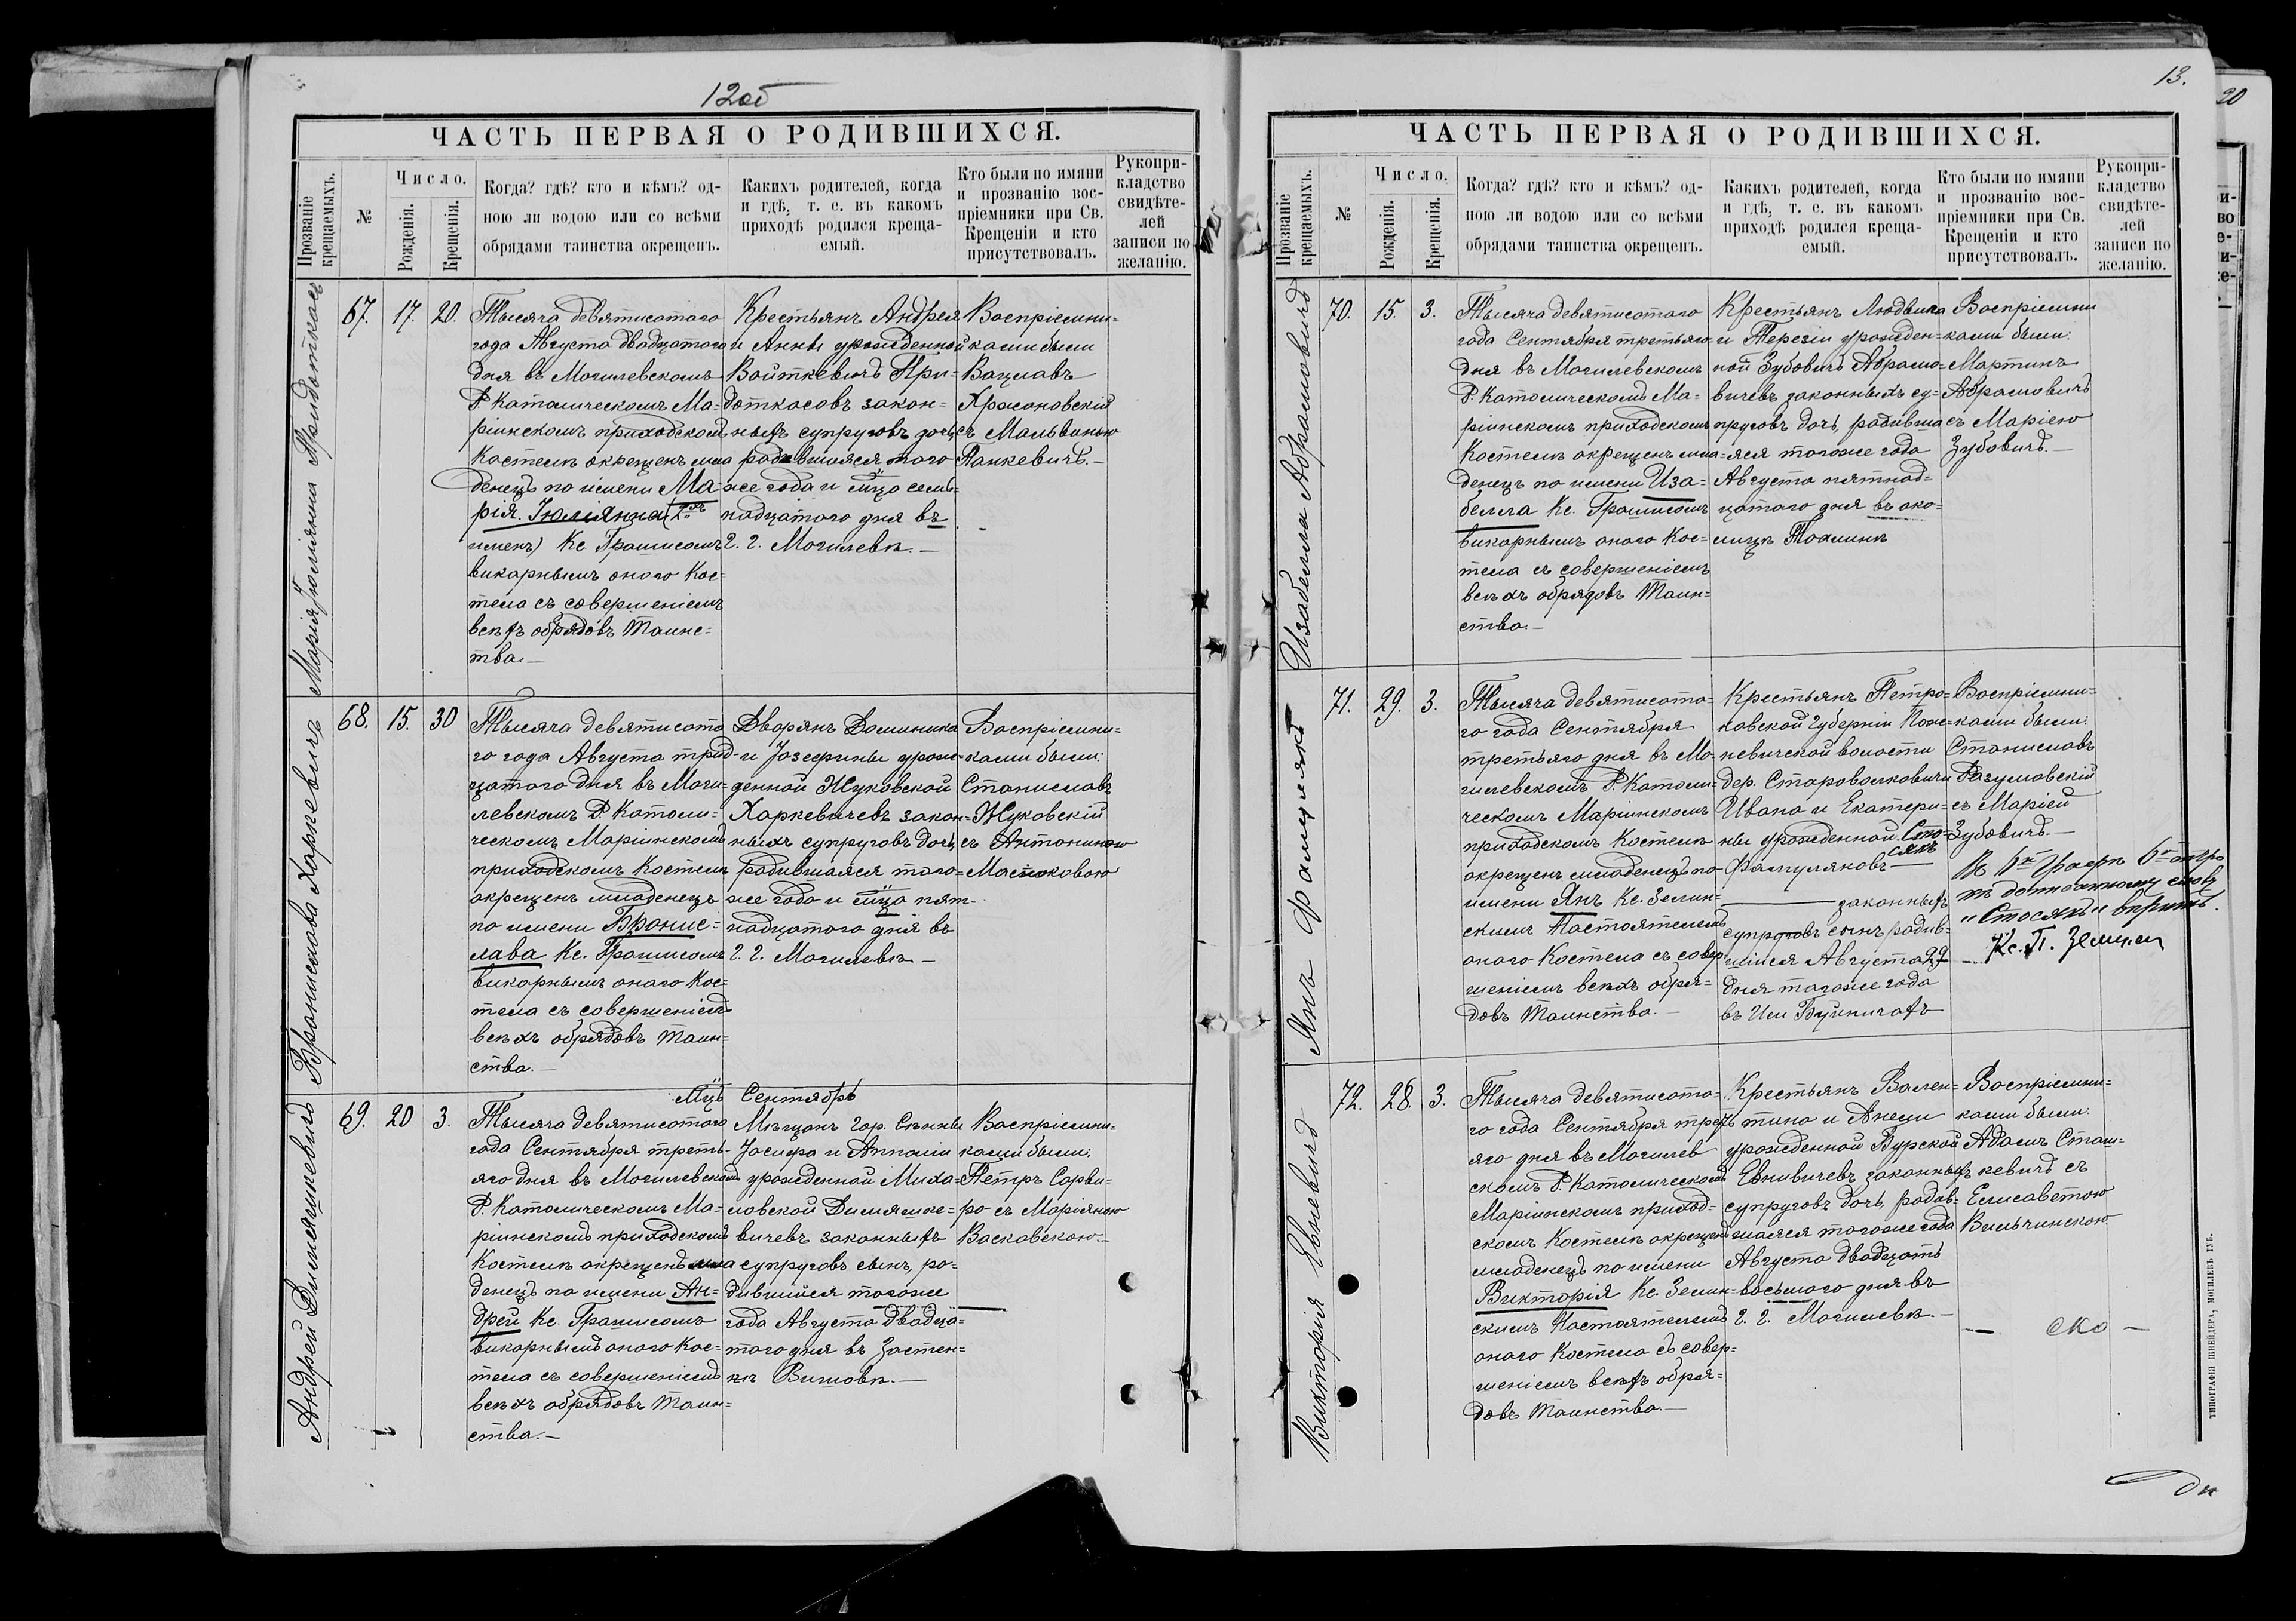 12об
ЧАСТЬ ПЕРВАЯ О РОДИВШИХСЯ.
Прозваніе крещаемыхъ.
№
Число.
Рожденія.
Крещенія.
Когда? гдѣ? кто и кѣмъ? од-
ною ли водою или со всѣми
обрядами таинства окрещенъ.
Какихъ родителей, когда
и гдѣ, т. е. въ какомъ
приходѣ родился креща-
емый.
Кто были по имяни
и прозванію вос-
пріемники при Св.
Крещеніи и кто
присутствовалъ.
Рукопри-
кладство
свидѣте-
лей
записи по
желанію.
Марія Юлміянна
67. 17. 20.
Тысяча девятисотаго
года Августа двадцатаго
дня въ Могилевскомъ
Р. Католическомъ Ма-
ріинскомъ приходскомъ
Костелѣ окрещенъ мла
денецъ по имени Ма-
рія Юлміянна (2хъ
именъ) Кс. Грашисомъ
викарнымъ онаго Кос-
тела съ совершеніемъ
всѣхъ обрядовъ Таинс-
тва.—
Крестьянъ Андрея
и Анны урожденной
Войткевичъ При-
доткасовъ закон-
ныхъ супруговъ дочь,
родившаяся того
же года и мца семь-
надцатаго дня въ
г. г. Могилевѣ.—
Воспріемни-
ками были
Вацлавъ
Хрсановскій
съ Мальвиною
Панкевичъ.—
Бронислава Харкевичъ
68. 15. 30
Тысяча девятисота
го года Августа трид-
цатаго дня въ Моги-
левскомъ Р. Католи-
ческомъ Маріинскомъ
приходскомъ Костелѣ
окрещенъ младенецъ
по имени Бронис-
лава Кс. Грашисомъ
викарнымъ онаго Кос-
тела съ совершеніемъ
всѣхъ обрядовъ Таин-
ства.—
Дворянъ Доминика
и Юзефины урож-
денной Жуковской
Харкевичевъ закон-
ныхъ супруговъ дочь,
родившаяся того-
же года и мца пят-
надцатаго дня въ
г. г. Могилевѣ—
Воспріемни-
ками были:
Станиславъ
Жуковскій
съ Антониною
Масюковою
Мцъ Сентябрь
Андрей Димяшкевичъ
69. 20 3.
Тысяча девятисотаго
года Сентября треть-
яго дня въ Могилевскомъ
Р. Католическомъ Ма-
ріинскомъ приходскомъ
Костелѣ окрещенъ мла
денецъ по имени Ан-
дрей Кс. Грашисомъ
викарнымъ онаго Кос-
тела съ совершеніемъ
всѣхъ обрядовъ Таин-
ства.—
Мѣщанъ гор. Сѣнны
Іосифа и Апполіи
урожденной Миха-
ловской Димяшке-
вичевъ законныхъ
супруговъ сынъ, ро-
дившійся тогоже
года Августа двадца-
таго дня въ Застен-
кѣ Вишовѣ.—
Воспріемни-
ками были:
Петръ Сорви-
ро съ Маріяною
Васковскою.—
13.
ЧАСТЬ ПЕРВАЯ О РОДИВШИХСЯ.
Прозваніе крещаемыхъ.
№
Число.
Рожденія.
Крещенія.
Когда? гдѣ? кто и кѣмъ? од-
ною ли водою или со всѣми
обрядами таинства окрещенъ.
Какихъ родителей, когда
и гдѣ, т. е. въ какомъ
приходѣ родился креща-
емый.
Кто были по имяни
и прозванію вос-
пріемники при Св.
Крещеніи и кто
присутствовалъ.
Рукопри-
кладство
свидѣте-
лей
записи по
желанію.
Изабелла Абрамовичъ
70. 15. 3.
Тысяча девятисотаго
года Сентября третьяго
дня въ Могилевскомъ
Р. Католическомъ Ма-
ріинскомъ приходскомъ
Костелѣ окрещенъ мла-
денецъ по имени Иза-
белла Кс. Грашисомъ
викарнымъ онаго Кос-
тела съ совершеніемъ
всѣхъ обрядовъ Таин-
ства.—
Крестьянъ Людвика
и Терезіи урожден-
ной Зубовичъ Абрамо-
вичевъ законныхъ су-
пруговъ дочь, родивша
яся тогоже года
Августа пятнад-
цатаго дня въ око-
лицѣ Тоалинѣ
Воспріемни
ками были:
Мартинъ
Абрамовичъ
съ Маріею
Зубовичъ.—
Янъ Фамулякъ
71. 29. 3.
Тысяча девятисота-
го года Сентября
третьяго дня въ Мо-
гилевскомъ Р. Католи-
ческомъ Маріинскомъ
приходскомъ Костелѣ
окрещенъ младенецъ по
имени Янъ Кс. Зелин-
скимъ Настоятелемъ
онаго Костела съ совер-
шеніемъ всѣхъ обря-
довъ Таинства.—
Крестьянъ Петро-
ковской Губерніи
невичской волости
дер. Староволковичи
Ивана и Екатери-
ны урожденной Сто-
сякъ
Фамуляковъ—
— законныхъ
супруговъ сынъ родив-
шійся Августа 29
дня тогоже года
въ Им Буйничахъ
Воспріемни-
ками были:
Станиславъ
Разумовскій
съ Маріей
Зубовичъ.—
Въ 6й графѣ 6
„Стосякъ“ вѣрить.
Кс. П. Зелин
Викторія Евневичъ
72. 28. 3.
Тысяча девятисота-
го года Сентября треть
яго дня въ Могилев
скомъ Р. Католическомъ
Маріинскомъ приход-
скомъ Костелѣ окрещенъ
младенецъ по имени
Викторія Кс. Зелин-
скимъ Настоятелемъ
онаго Костела съ совер-
шеніемъ всѣхъ обря-
довъ Таинства.—
Крестьянъ Вален-
тина и Анели
урожденной Бурской
Евневичевъ законныхъ
супруговъ дочь, родив-
шаяся тогоже года
Августа двадцать
восьмого дня въ
г. г. Могилевѣ.—
Воспріемни-
ками были:
Адамъ Сташ-
кевичъ съ
Елисаветою
Вильчинскою
— ско —
ТИПОГРАФІЯ ШНЕЙДЕРА, МОГИЛЕВЪ ГУБ.
20